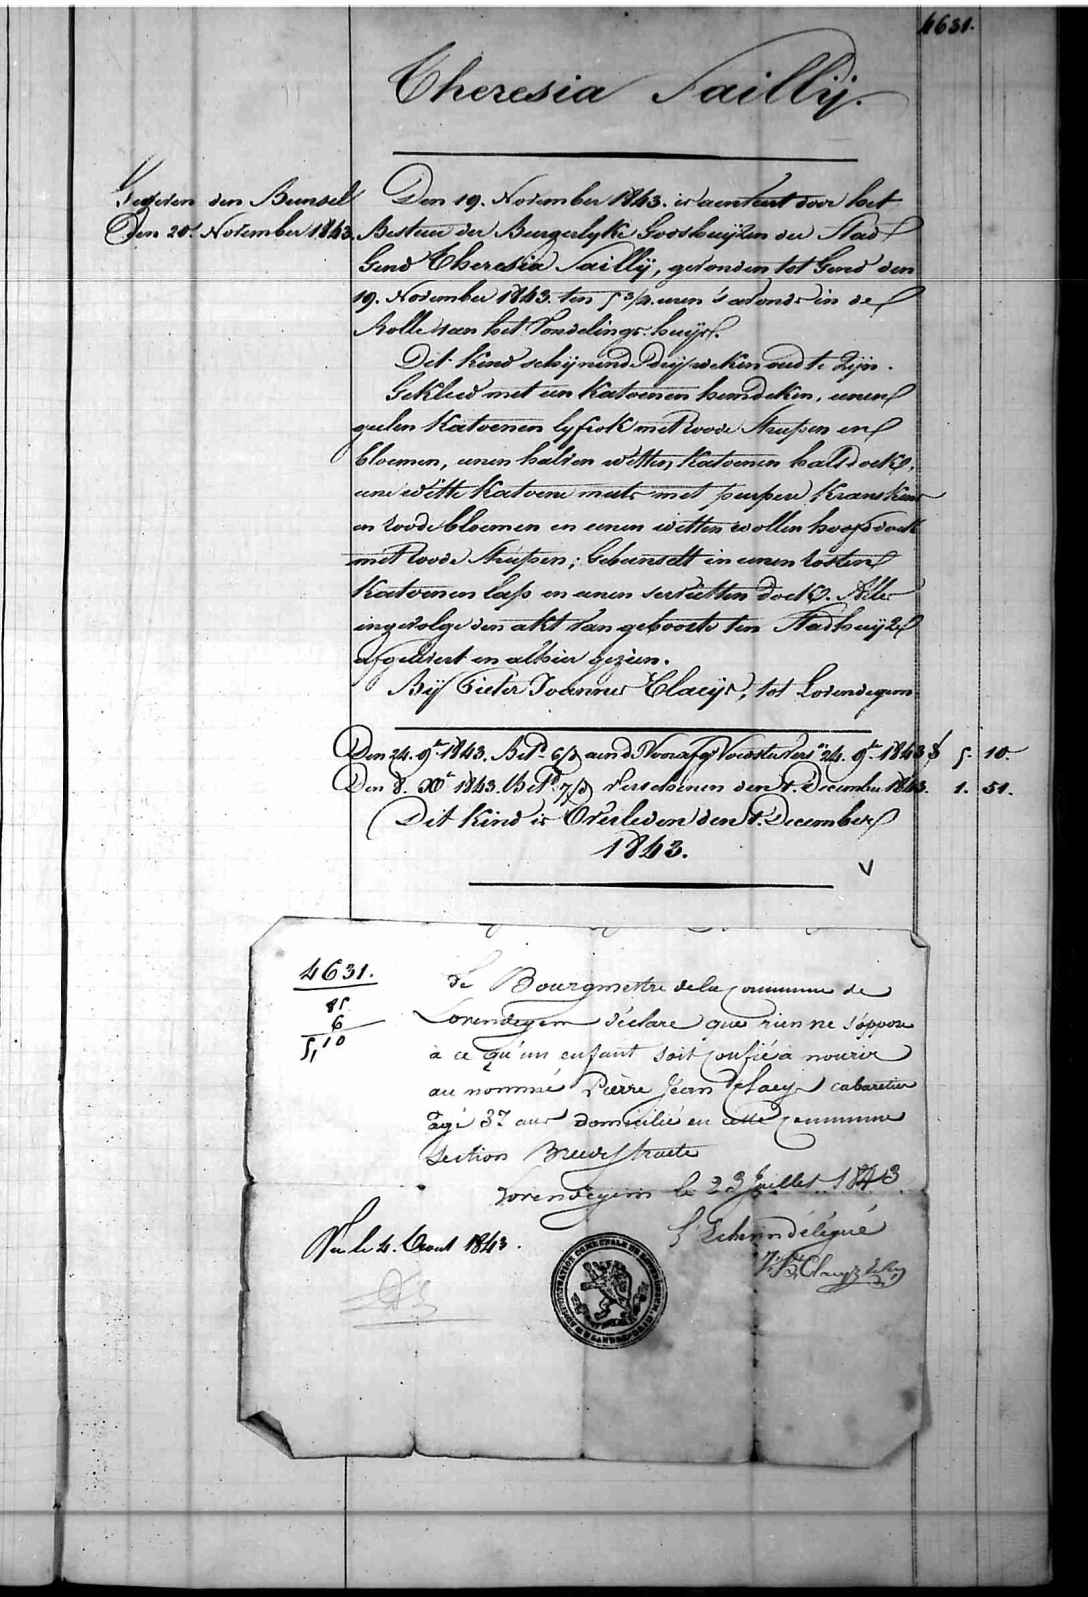 4631.
Theresia Saillÿ.
Gegeven den Bunsel
Den 20. November 1843.
Den 19. November 1843. is aenveert door het
Bestuer der Burgerlyke Godshuijzen der Stad
Gend Theresia Saillÿ, gevonden tot Gend den
19. November 1843. ten 5 3/4 uren 's avonds in de
Rolle van het Vondelings-huijs.
Dit kind schijnende drij weken oud te zijn.
Gekleed met een katoenen hemdeken, eenen
geelen katoenen lyfrok met roode streepen en
bloemen, eenen halven witten katoenen halsdoek,
eene witte katoene muts met purpere kranskens
en roode bloemen en eenen witten wollen hoofdoek
met roode streepen; Gebunselt in eenen rosten
katoenen lap en eenen servietten doek. Alles
ingevolge den akt van geboorte ten Stadhuijze
afgelevert en alhier gezien.
Bÿ Pieter Joannes Claeijs, tot Lovendegem
Den 24. 9r 1843. Betd 6/d aend Voorafgr Voedster vers 24. 9r 1843 5. 10.
Den 8. Xr 1843. Betd 7/d verschenen den 1. December 1843. 1. 51.
Dit kind is Overleden den 1. December
1843.
4631.
85
6
5,10
Le Bourgmestre de la commune de
Lovendegem déclare que rien ne s'oppose
à ce qu'un enfant soit confié à nourir
au nommé Pierre Jean Claeys cabaretier
agé 37 ans domicilié en cette commune
Section Breedestraete
Lovendegem le 23 Juillet 1843.
L'Echevin délégué
Vu le 4. Aout 1843.